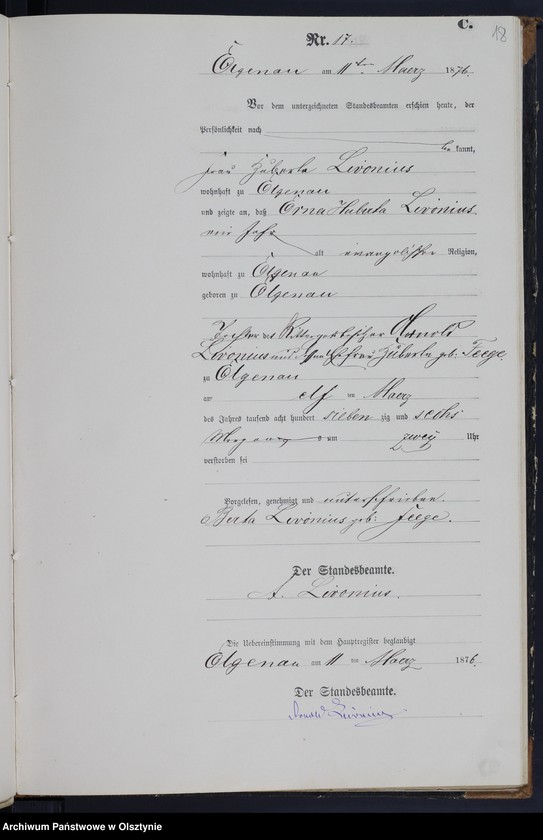 C.
18
Nr. 17.
Elgenau am 11ten Maerz 1876.
Vor dem unterzeichneten Standesbeamten erschien heute, der
Persönlichkeit nach
be kannt,
Frau Livonius
wohnhaft zu Elgenau
und zeigte an, daß Erna Huberta Livonius
ein Jahr
alt evangelischer Religion,
wohnhaft zu Elgenau
geboren zu Elgenau
Tochter des Rittergutsbesitzer Arnold
Livonius und dessen Ehefrau geb: Feege
zu Elgenau
am elf ten Maerz
des Jahres tausend acht hundert sieben zig und sechs
Morgens um zwey Uhr
verstorben sei
Vorgelesen, genehmigt und unterschrieben.
Berta Livonius geb: Feege.
Der Standesbeamte.
A. Livonius.
Die Uebereinstimmung mit dem Hauptregister beglaubigt
Elgenau am 11 ten Maerz 1876.
Der Standesbeamte.
Arnold Livonius
Archiwum Państwowe w Olsztynie